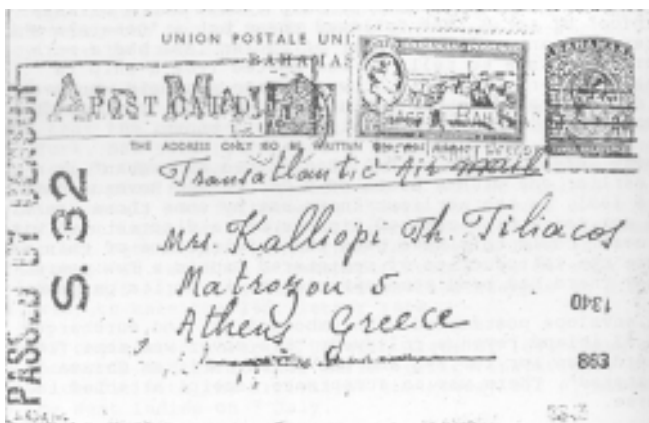 UNION POSTALE UNI
BAHAMAS
POST CARD
THE ADDRESS ONLY TO BE WRITTEN
Transatlantic Air mail
Mrs. Kalliopi Th. Tiliacos
Matrozou 5
Athens Greece
PASSED BY CENSOR
S. 32
1340
893